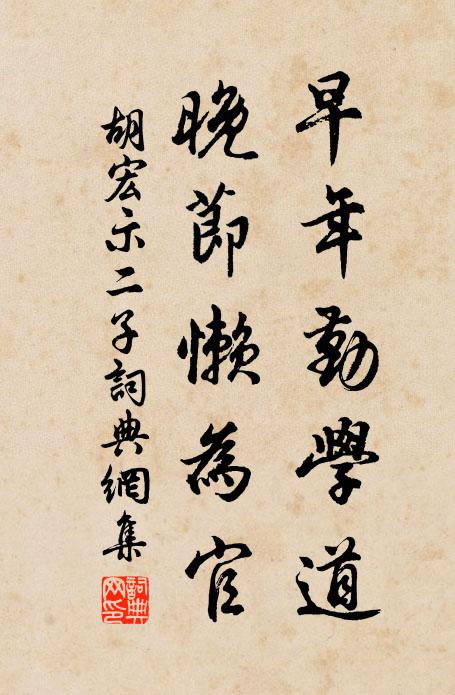 早年勤學道
晚節懶為官
胡宏示二子詞典網集
詞典網印